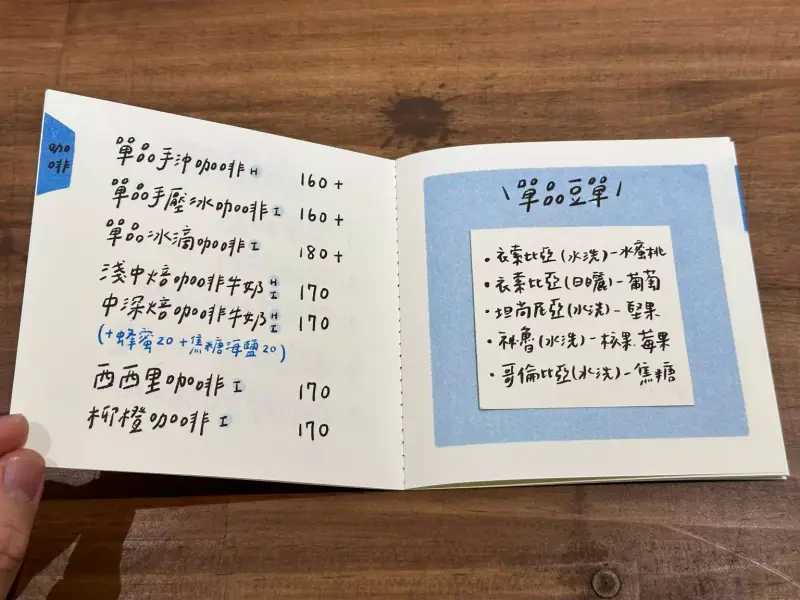 咖
啡
單品手沖咖啡 H 160+
單品手壓冰咖啡 I 160+
單品冰滴咖啡 I 180+
淺中焙咖啡牛奶 H I 170
中深焙咖啡牛奶 H I 170
(+蜂蜜20 +焦糖海鹽20)
西西里咖啡 I 170
柳橙咖啡 I 170
\單品豆單/
•衣索比亞(水洗)-水蜜桃
•衣索比亞(日曬)-葡萄
•坦尚尼亞(水洗)-堅果
•祕魯(水洗)-核果.莓果
•哥倫比亞(水洗)-焦糖